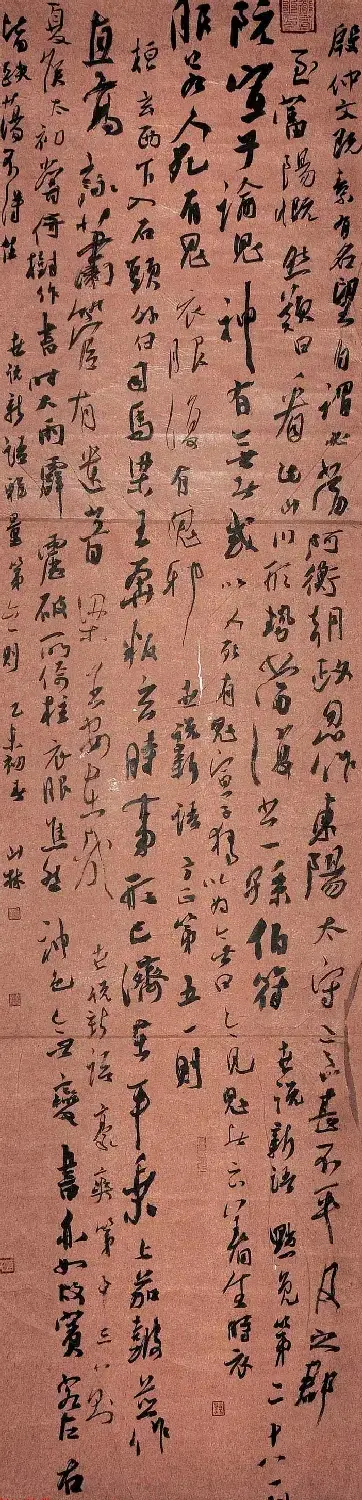 殷仲文既素有名望自謂必當阿衡朝政忽作東陽太守意甚不平及之郡
至富陽慨然嘆曰看此山川形勢當復出一孫伯符 世說新語黜免第二十八一則
阮宣子論鬼神有無者或以人死有鬼宣子獨以為無曰今見鬼者云著生時衣
服若人死有鬼衣服復有鬼邪 世說新語方正第五一則
桓玄西下入石頭外白司馬梁王奔叛玄時事形已濟在平乘上笳鼓並作
直高詠簫管有遺音梁王安在哉 世說新語豪爽第十三一則
夏侯太初嘗倚樹作書時大雨霹靂破所倚柱衣服焦然神色無變書亦如故賓客左右
皆跌蕩不得住 世說新語雅量第六一則 初春 山林